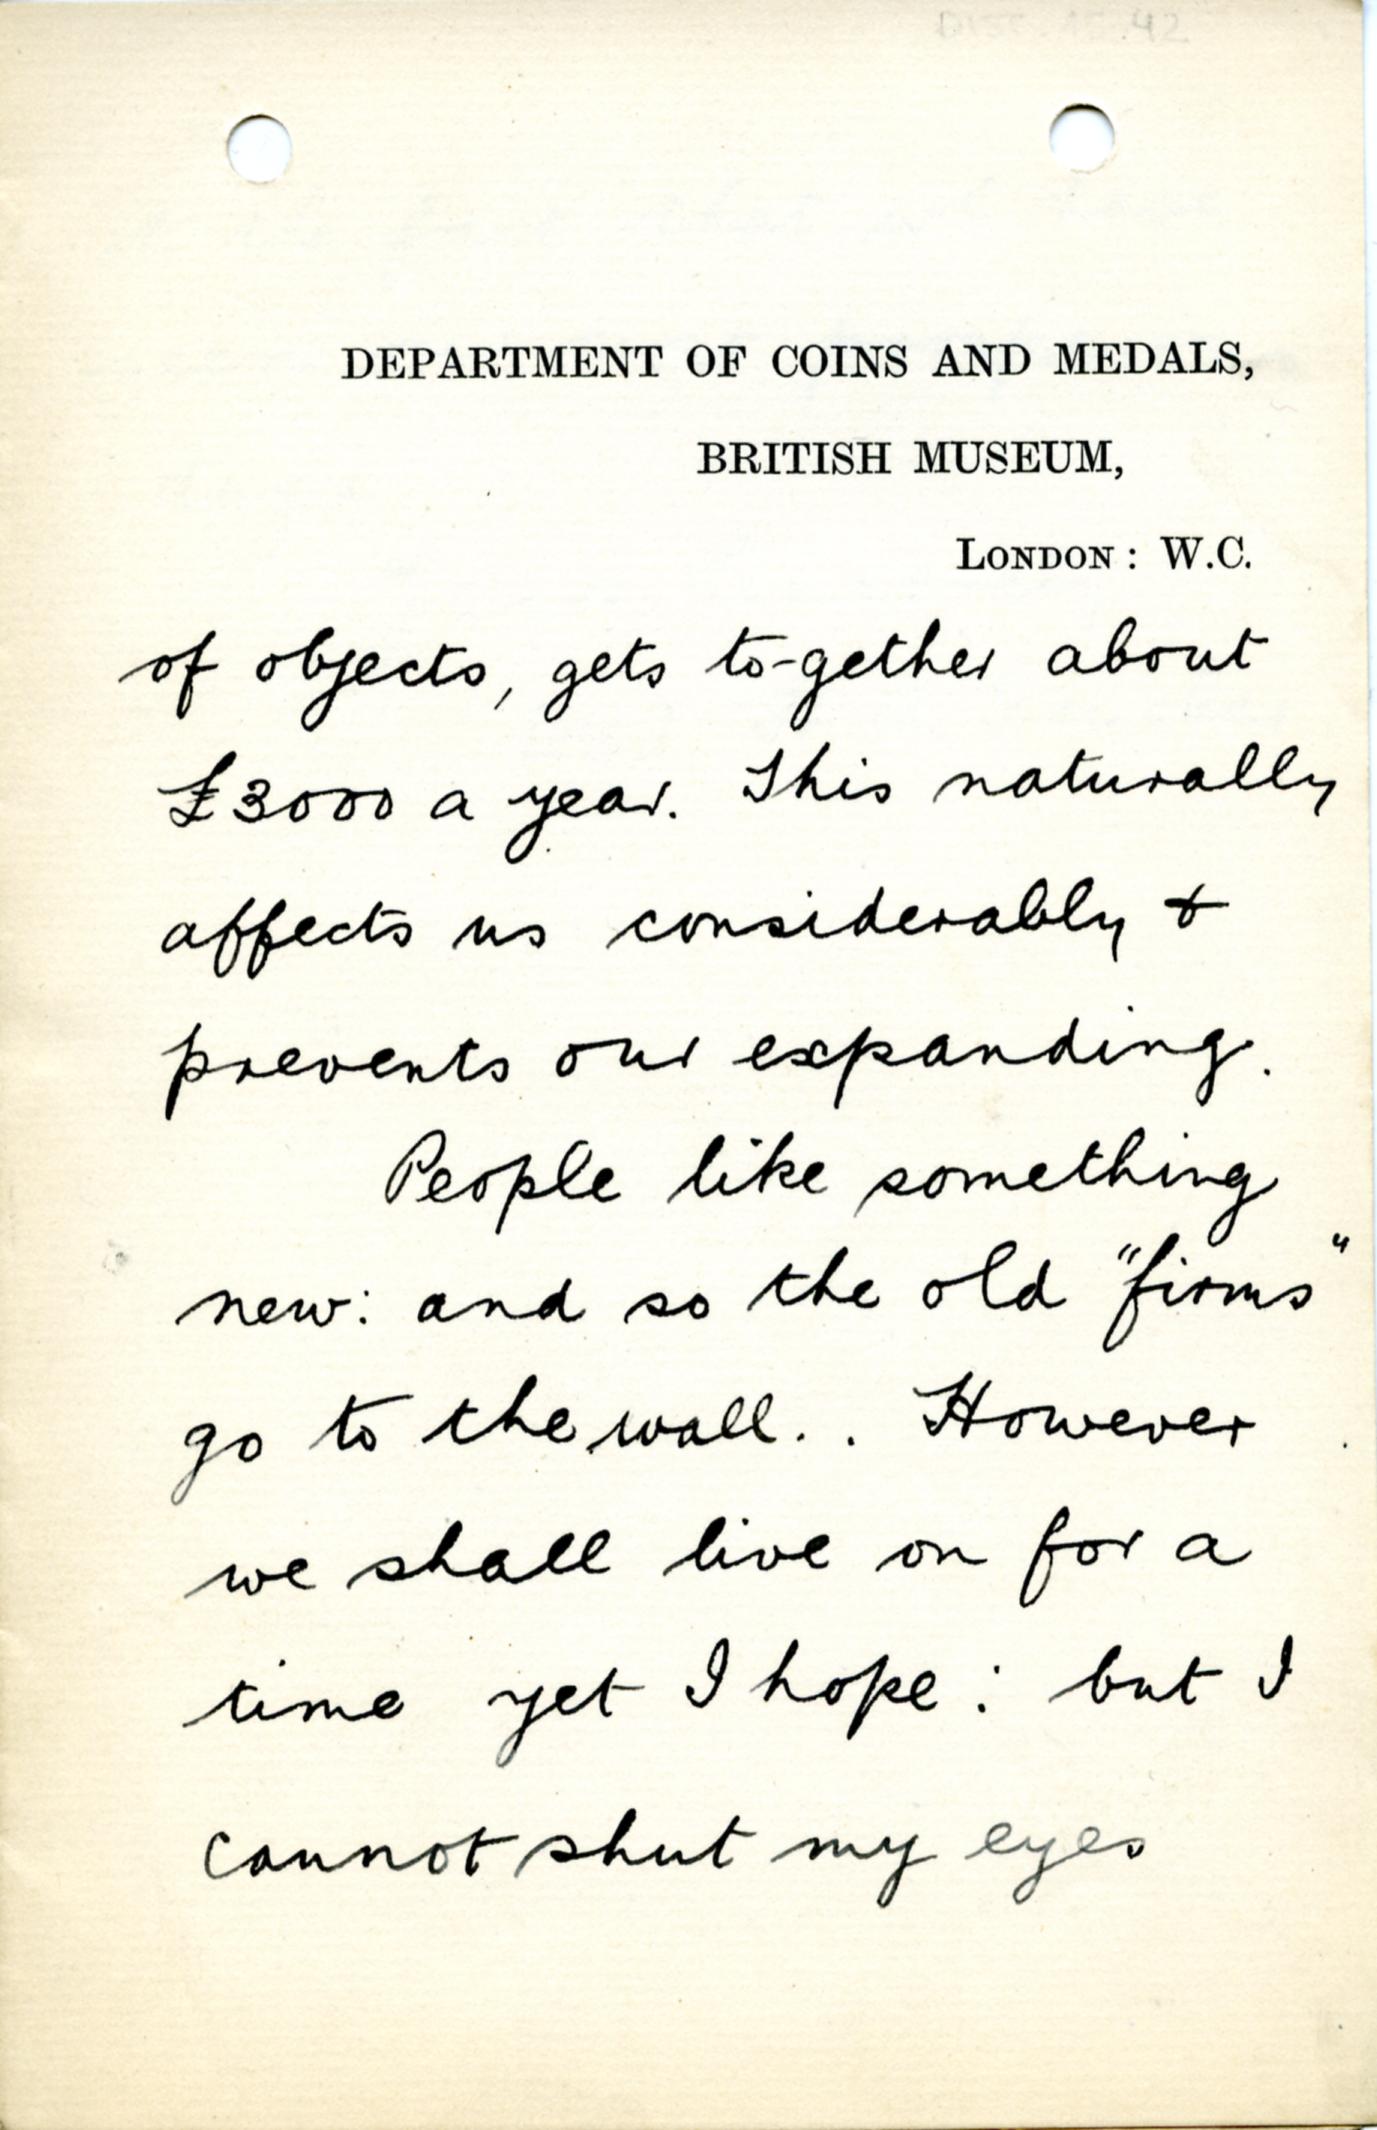 DEPARTMENT OF COINS AND MEDALS,
BRITISH MUSEUM,
LONDON: W.C.
of objects, gets to-gether about
£3000 a year. This naturally
affects us considerably &
prevents our expanding.
People like something
new: and so the old "firms"
go to the wall.. However
we shall live on for a
time yet I hope: but I
cannot shut my eyes